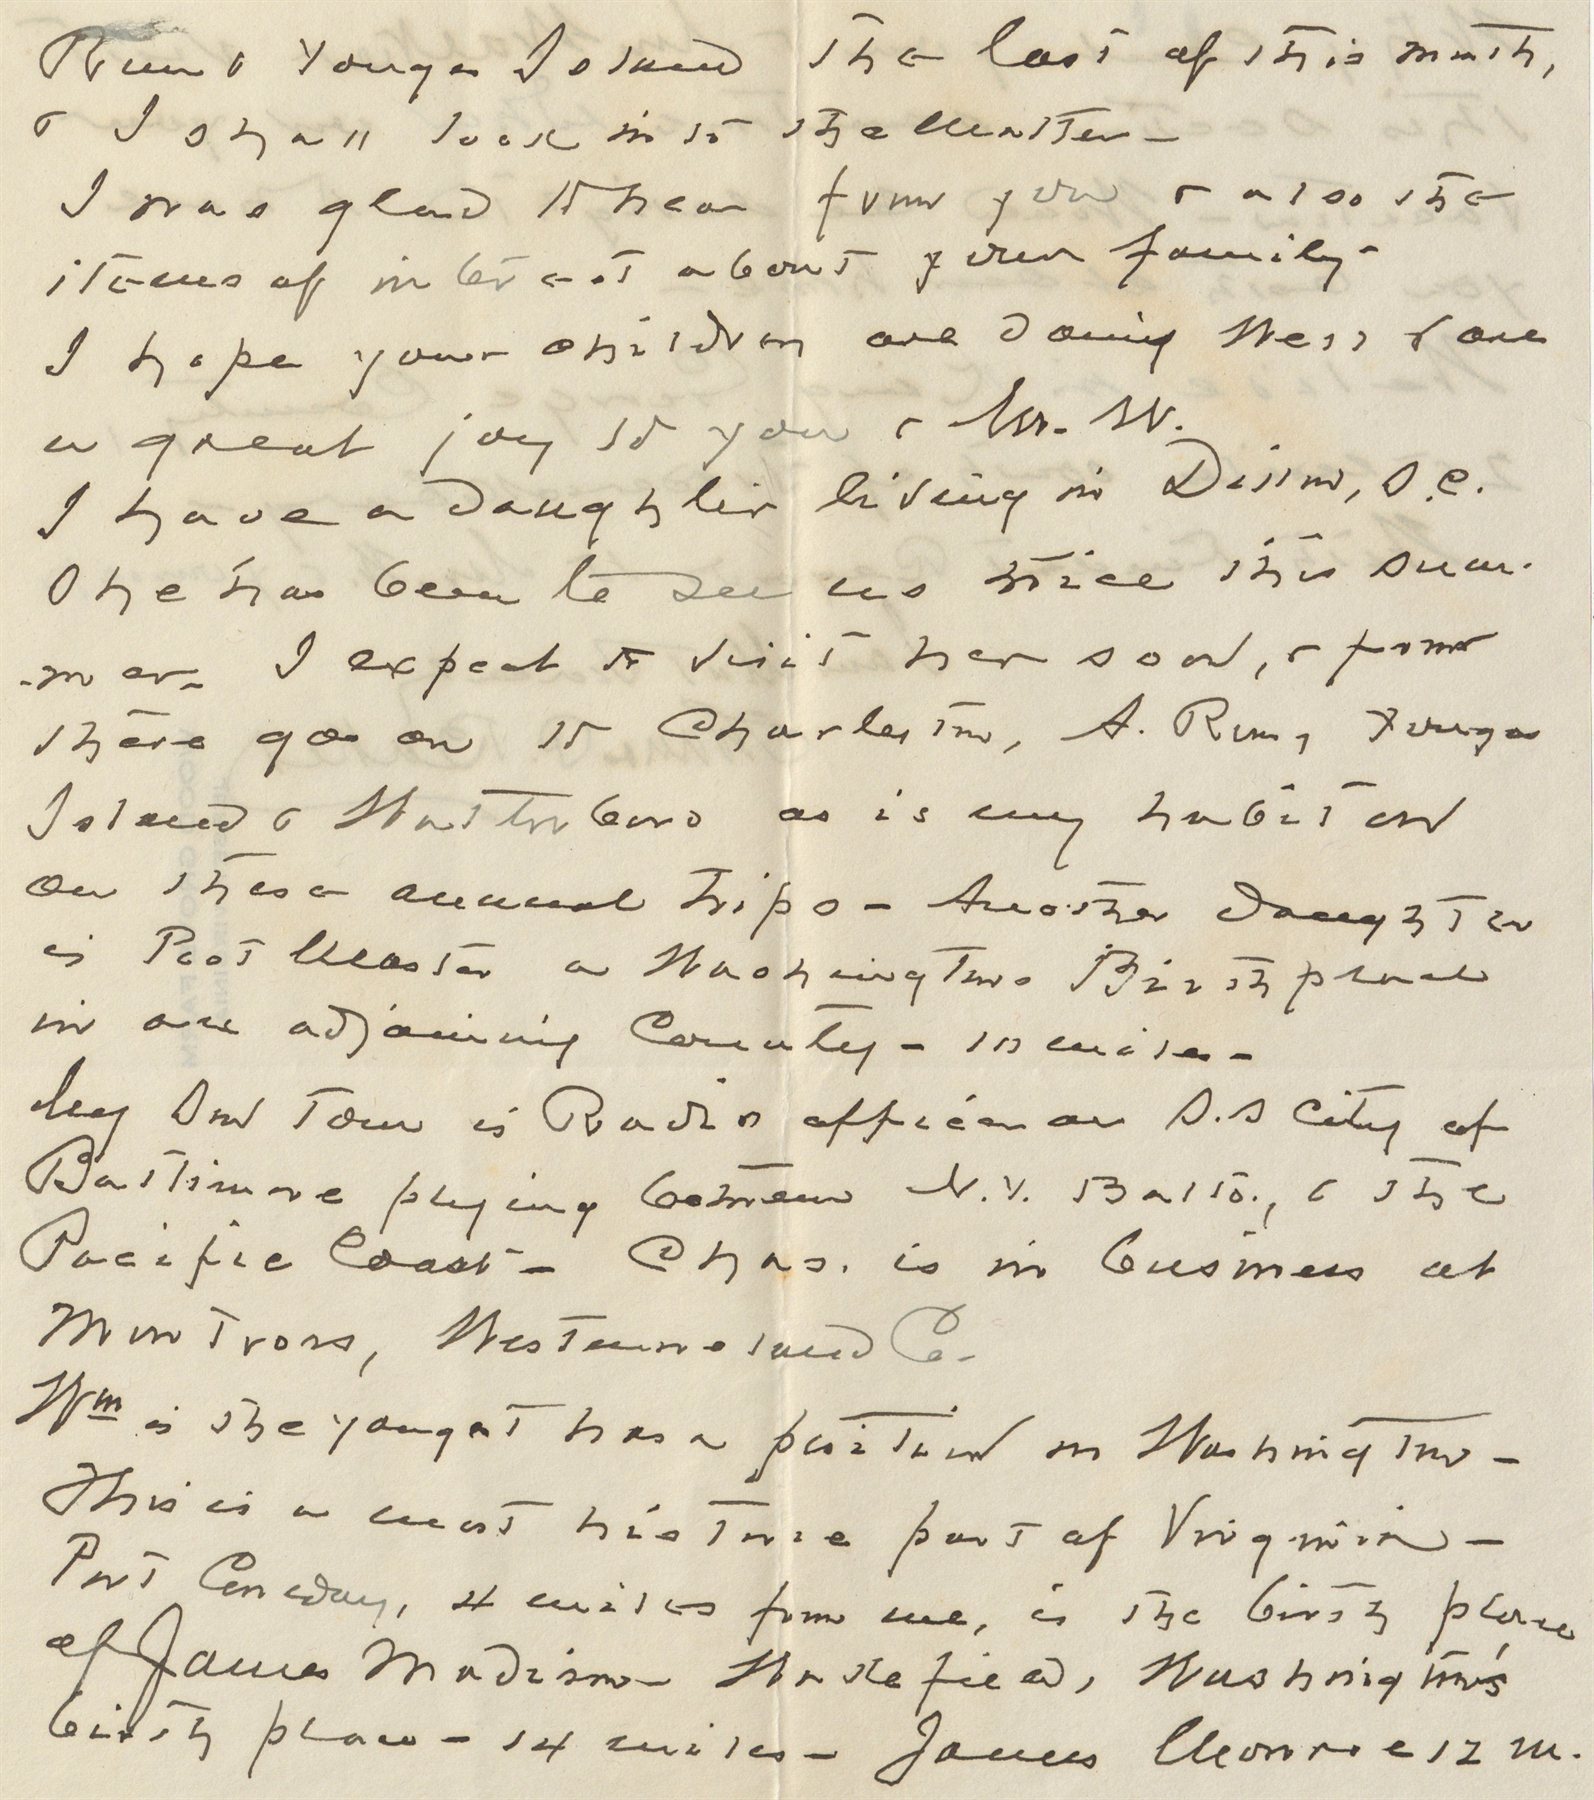 Rum & Yonges Island the last of this month,
& I shall look into the Matter -
I was glad to hear from you & also the
items of interest about your family -
I hope your children are doing Well & are
a great joy to you & Mr. W.
I have a daughter living in Dillon, S.C.
She has been to see us twice this sum-
-mer. I expect to visit her soon, & from
there go on to Charleston, A. Rum, Yonges
Island & Walterboro as is my habit on
on these annual trips - Another daughter
is Post Master a Washingtons Birthplace
in an adjoining County - 15 miles -
My Son Tom is Radio officer on S.S City of
Baltimore plying between N.Y. Balto., & the
Pacific Coast - Chas. is in business at
Montross, Westmoreland Co.
Wm is the youngest has a position in Washington -
This is a most historic part of Virginia -
Port Conway, 4 miles from me, is the birth place
of James Madison - Wakefield, Washington's
birth place - 14 miles - James Monroe 12 m.